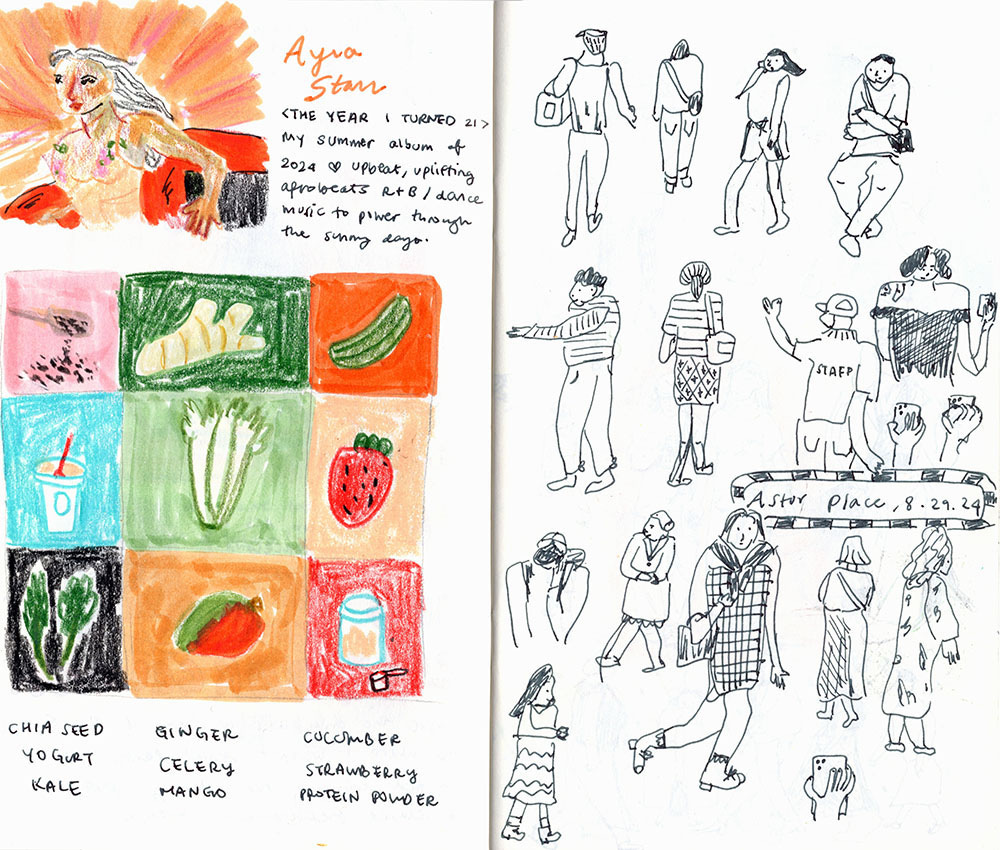 Ayra
Starr
<THE YEAR I TURNED 21>
MY SUMMER ALBUM OF
2024 ♡ UPBEAT, UPLIFTING
AFROBEATS R+B / DANCE
MUSIC TO POWER THROUGH
THE SUNNY DAYS.
CHIA SEED
YOGURT
KALE
GINGER
CELERY
MANGO
CUCUMBER
STRAWBERRY
PROTEIN POWDER
STAFF
Astor Place, 8.29.24